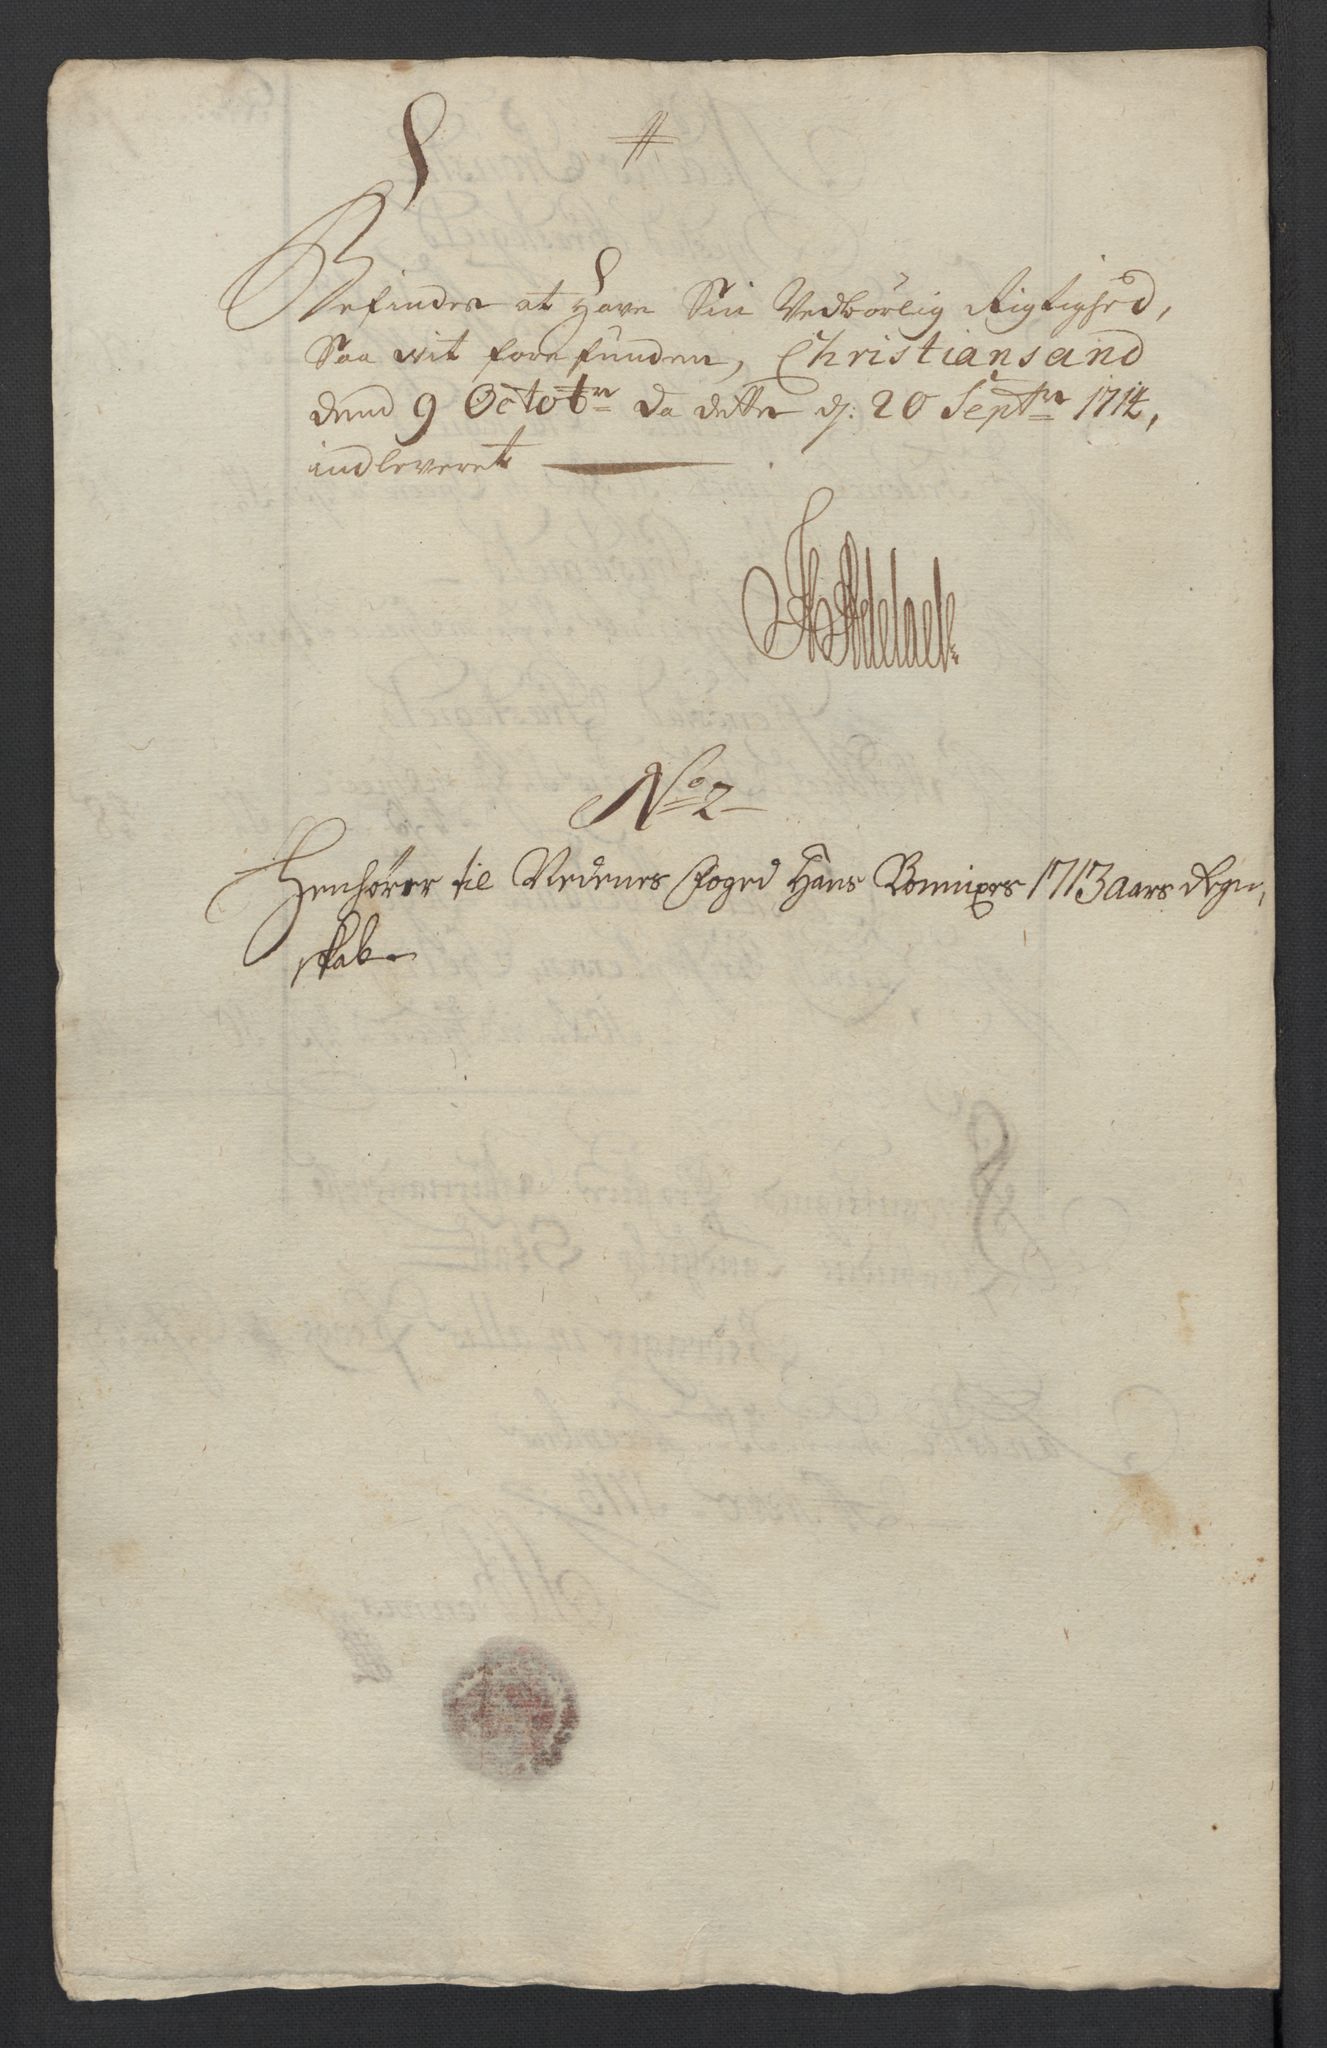 Befindes at Have Sin Vedbörlig Rigtighed,
Saa wit forefunden, Christiansand
dend 9 Octobr: da dette d: 20 Septr: 1714,
indleveret
No 2
Henhører til Nedenes Foged Hans 1713 aars Regn,
skab